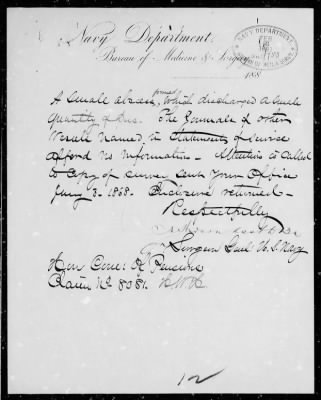 Navy Department,
Bureau of Medicine & Surgery
188
NAVY DEPARTMENT
A small abscess formed, which discharged a small
quantity of pus. The Journals of other
vessels named in statements of service
afford no information _ Attention is called
to copy of survey sent your Office
Jany 3. 1868. Enclosures returned _
Respectfully
Surgeon Genl U.S. Navy
Hon Com: of Pensions
Claim No 8081.
12